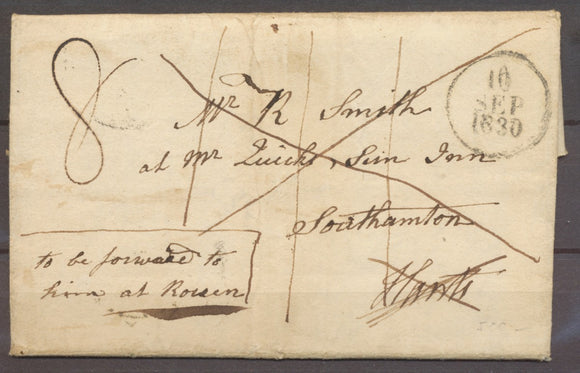 8
10
SEP
1830
Mr R Smith
at Mr Quicks, Sun Inn
Southamton
Hants
to be forwaed to
him at Rouen